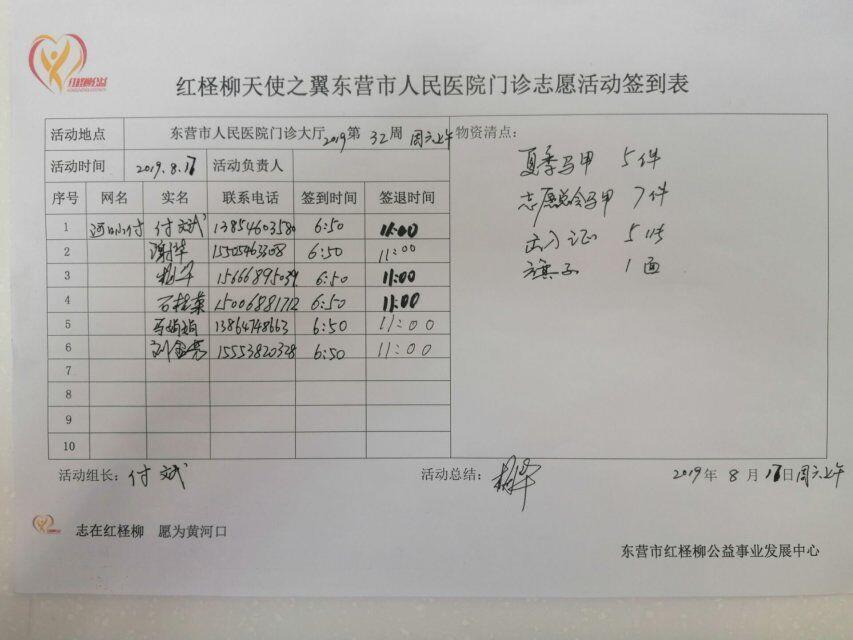 红柽柳公益
红柽柳天使之翼东营市人民医院门诊志愿活动签到表
活动地点 东营市人民医院门诊大厅 2019第32周 周六上午 物资清点：
活动时间 2019.8.17 活动负责人
夏季马甲 5件
志愿总会马甲 7件
出入证 5件
旗子 1面
序号 网名 实名 联系电话 签到时间 签退时间
1 河口小付 付斌 13854603580 6:50 11:00
2 谢华 15505463308 6:50 11:00
3 杨华 15666895039 6:50 11:00
4 石桂荣 15006881712 6:50 11:00
5 娟娟 13864748663 6:50 11:00
6 刘金亮 15553820328 6:50 11:00
7
8
9
10
活动组长：付斌 活动总结：杨华 2019年8月17日周六上午
志在红柽柳 愿为黄河口
东营市红柽柳公益事业发展中心